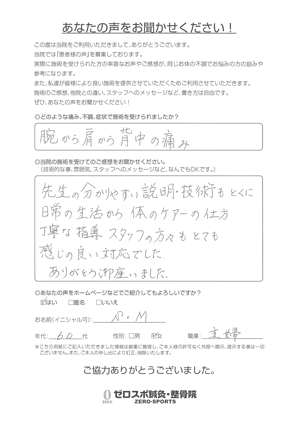 あなたの声をお聞かせください！
この度は当院をご利用いただきまして、ありがとうございます。
当院では「患者様の声」を募集しております。
実際に施術を受けられた方の率直なお声やご感想が、同じお体の不調でお悩みの方の励みや
参考になります。
また、私達が皆様により良い施術を提供させていただくためにご利用させていただきます。
施術のご感想、他院との違い、スタッフへのメッセージなど、書き方は自由です。
ぜひ、あなたの声をお聞かせください！
◎どのような痛み、不調、症状で施術を受けられましたか？
腕から肩から背中の痛み
◎当院の施術を受けてのご感想をお聞かせください。
（技術的な事、雰囲気、スタッフへのメッセージなど、なんでもOKです。）
先生の分かりやすい説明・技術もとくに
日常の生活から体のケアーの仕方
丁寧な指導 スタッフの方々もとても
感じの良い対応でした
ありがとう御座いました.
◎あなたの声をホームページなどでご紹介してもよろしいですか？
☑はい □匿名 □いいえ
お名前(イニシャル可)： S・M
年代： 60 代 性別：□男 ☑女 職業： 主婦
※こちら用紙にご記入いただきました情報は厳重に管理し、ご本人様の許可なく外部へ開示、提示する事は一切
ございません。また、ご本人の申し出により訂正、削除いたします。
ご協力ありがとうございました。
ゼロスポ鍼灸・整骨院
ZERO-SPORTS